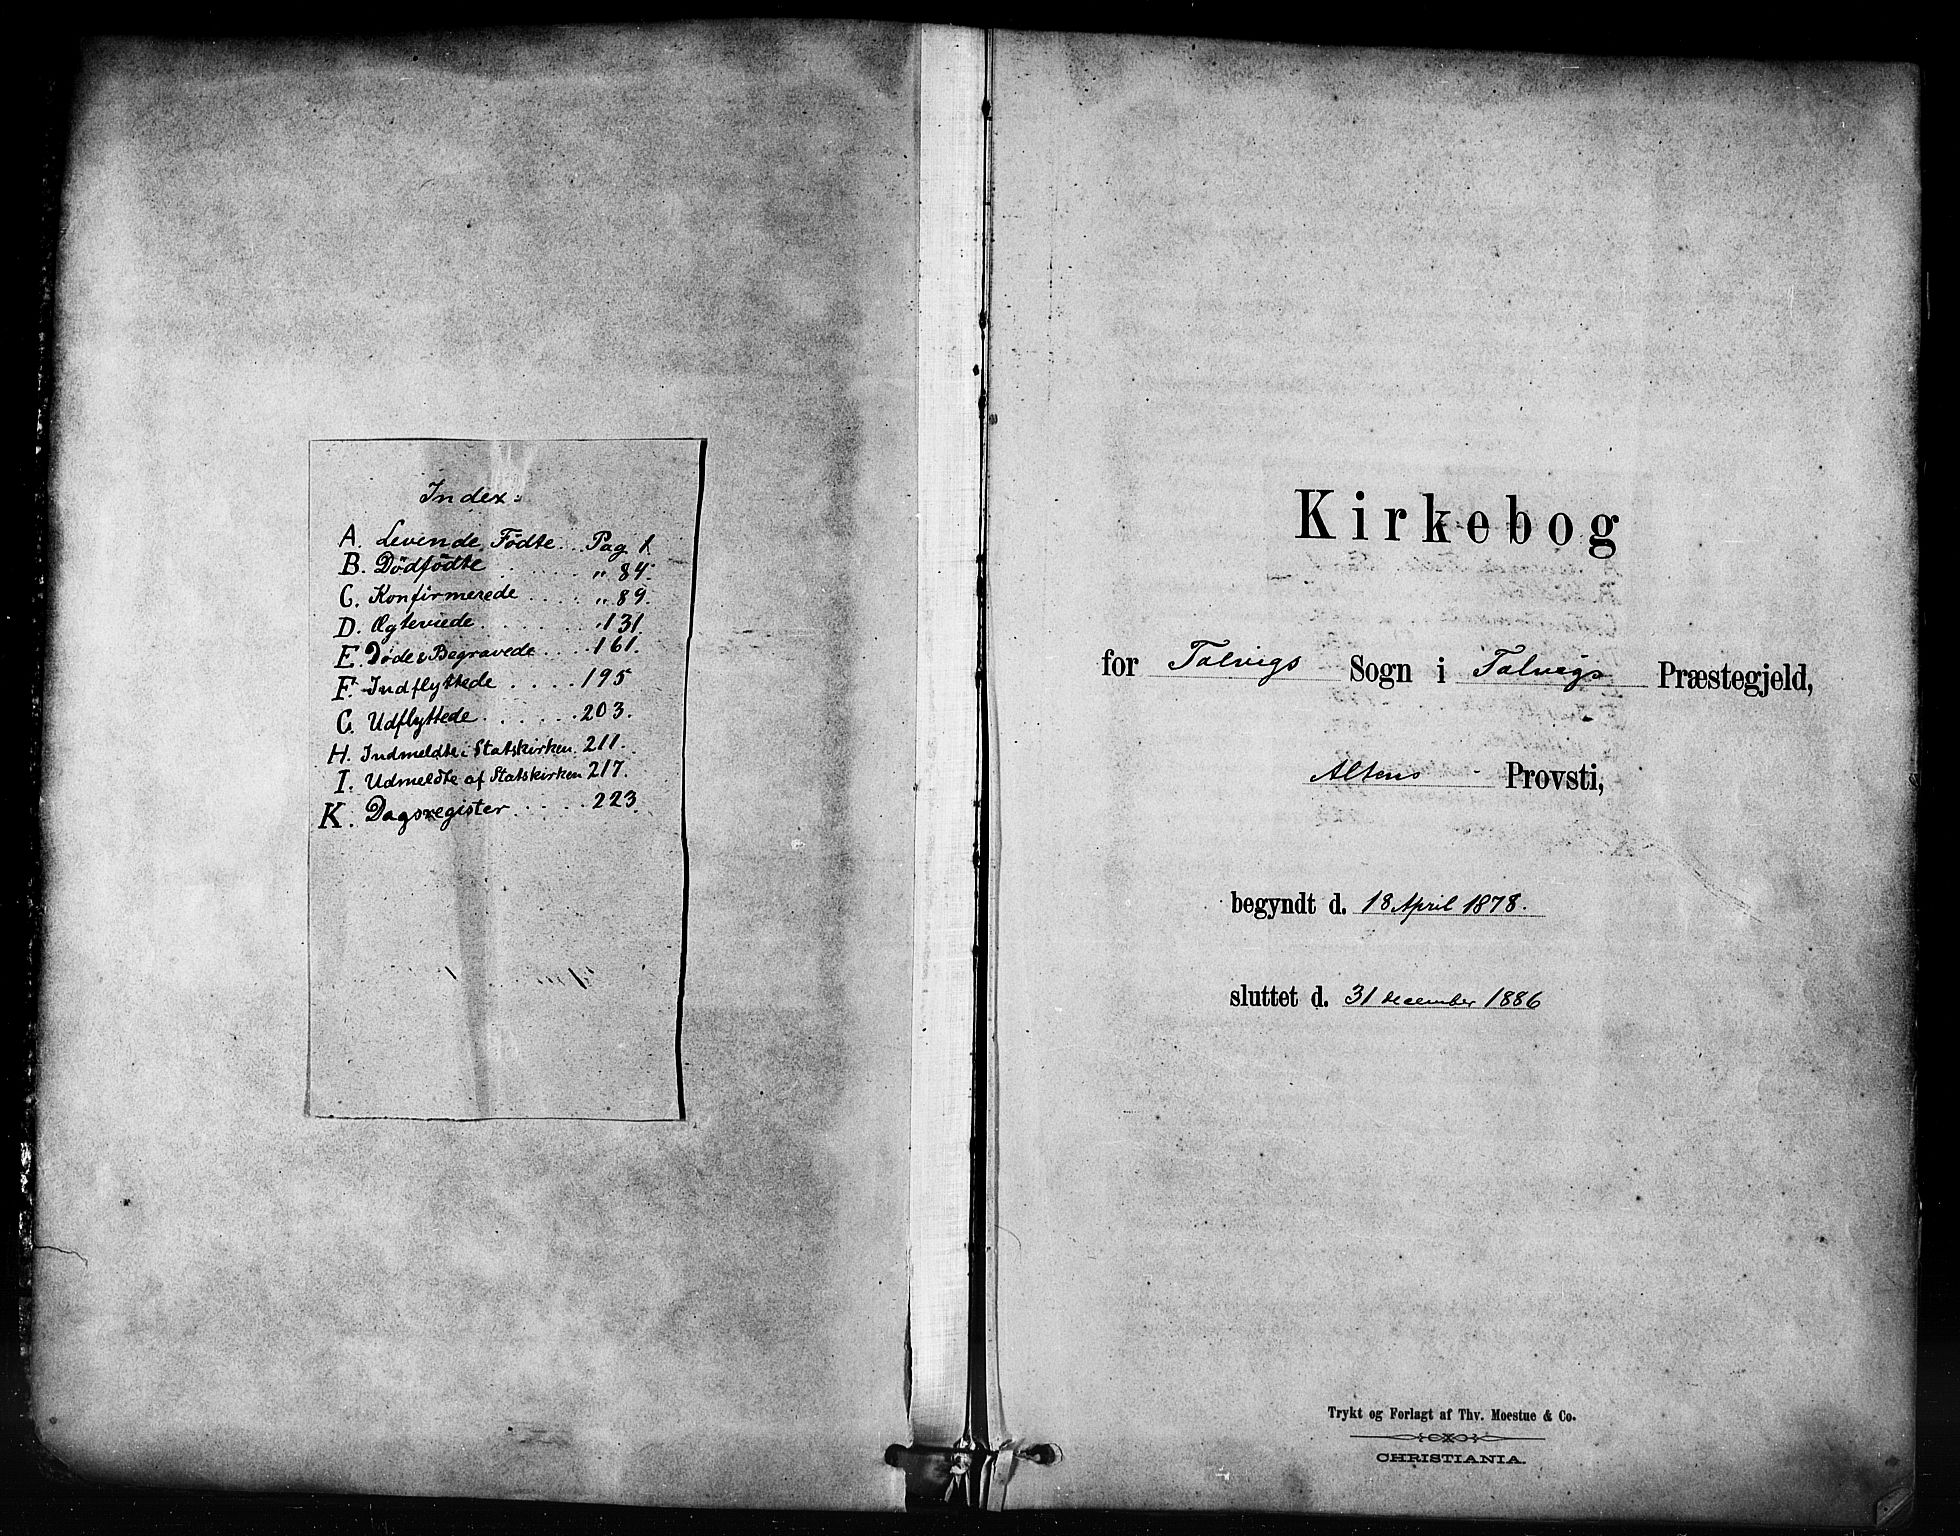 Index:
A. Levende Fødte .. Pag 1
B. Dødfödte ....... „ 84.
C. Konfirmerede .... „ 89.
D. Ægteviede ........ „ 131.
E. Døde & Begravede .... 161.
F. Indflyttede .... 195
G. Udflyttede ...... 203.
H. Indmeldte i Statskirken. 211.
I. Udmeldte af Statskirken 217.
K. Dagsregister ..... 223
Kirkebog
for Talvigs Sogn i Talvigs Præstegjeld,
Altens Provsti,
begyndt d. 18 April 1878.
sluttet d. 31 december 1886
Trykt og Forlagt af Thv. Moestue & Co.
CHRISTIANIA.